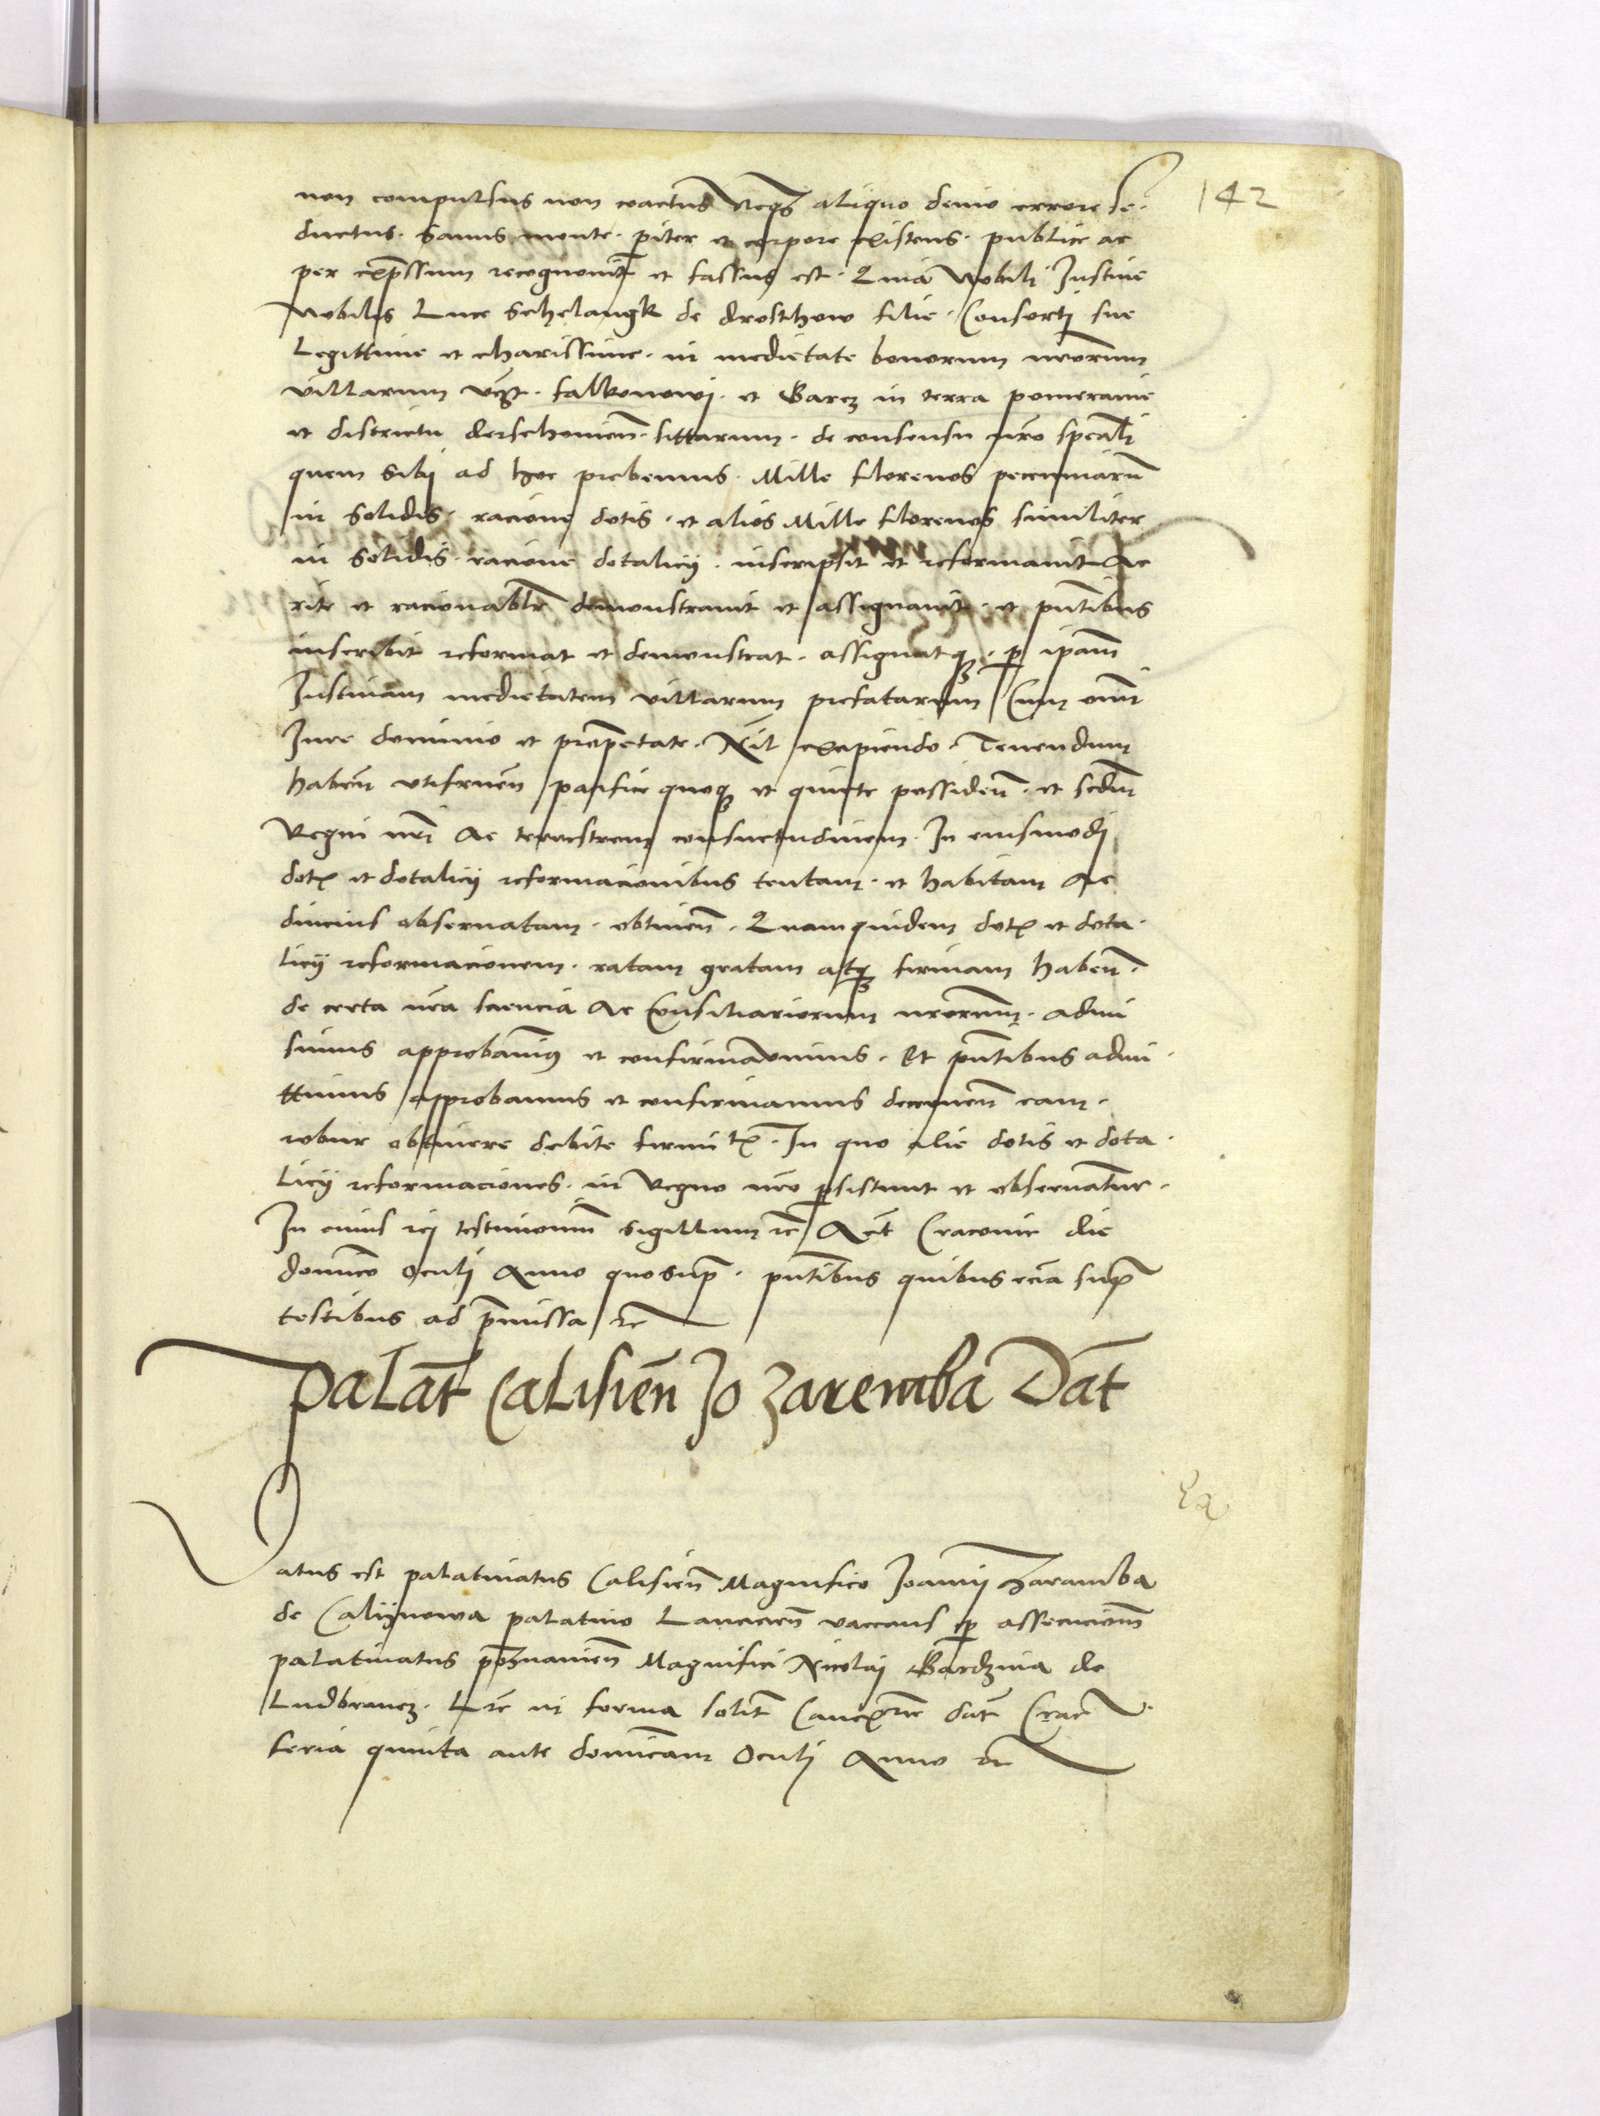 142
non compulsus non coactus Neqz aliquo devio errore se.
ductus. Sanus mente. pariter et corpore existens. publice ac
per expressum recognovit et fassus est. Quia Nobili Justine
Nobilis Luce Schelangk de drosthow filie. Consorti sue
Legittime et charissime. in medietate bonorum nrorum
villarum vcz. falkonowi. et Garcz in terra pomeranie
et districtu derschovien. sittarum. de consensu nro speali
quem sibi ad hoc prebemus. Mille florenos pecuniaru
in solidis. racione dotis. et alios Mille florenos similiter
in solidis. racione dotalicij. inscripsit et reformavit Ac
rite et racionabilr demonstravit et assignavit. et pntibus
inscribit reformat et demonstrat. assignatqz. p ipam
Justinam medietatem villarum prefatarum Cum omni
Jure dominio et proprietate. Nil excipiendo. Tenendum
habend utifruen pacifice quoqz et quiete possidend. et scdm
Regni nri Ac terrestrem consuetudinem. In eiusmodi
dotis et dotalicij reformacionibus tentam. et habitam Ac
diucius observatam. obtinend. Quamquidem dotis et dota.
licij reformacionem. ratam gratam atqz firmam haben.
de certa nra sciencia Ac Consiliariorum nrorum. admi
simus approbavimus et confirmavimus. Et pntibus admi.
ttimus approbamus et confirmamus decernen eam.
robur obtinere debite firmitatis. In quo alie dotis et dota.
licij reformaciones. in Regno nro psistunt et observantur.
In cuius rei testimonium sigillum rc Act Cracovie die
dominico Oculi Anno quo sup. pntibus quibus ecia sup
testibus ad pmissa rc
Palat Calisien Jo Zaremba Dat
Datus est palatinatus Calisien Magnifico Joanni Zaramba
de Calijnowa palatino Lancicien vaccans p assecucionem
palatinatus poznanien Magnifici Nicolaj Gardzina de
Ludbrancz. Lre in forma solit Cancrie dat Crac
feria quinta ante dominicam Oculi Anno rc